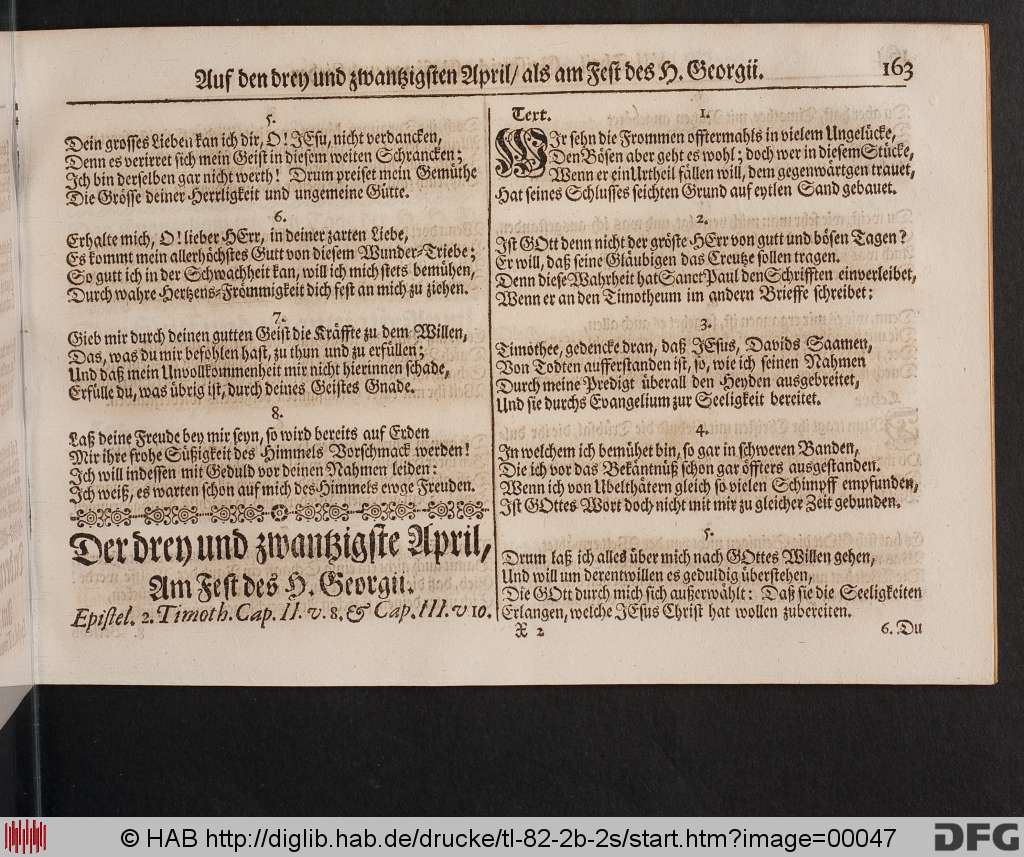 Auf den drey und zwantzigsten April/ als am Fest des H. Georgii.
163
5.
Dein grosses Lieben kan ich dir, O! JEsu, nicht verdancken,
Denn es verirret sich mein Geist in diesem weiten Schrancken;
Ich bin derselben gar nicht werth! Drum preiset mein Gemüthe
Die Grösse deiner Herrligkeit und ungemeine Gütte.
6.
Erhalte mich, O! lieber HErr, in deiner zarten Liebe,
Es kommt mein allerhöchstes Gutt von diesem Wunder-Triebe;
So gutt ich in der Schwachheit kan, will ich mich stets bemühen,
Durch wahre Hertzens-Frömmigkeit dich fest an mich zu ziehen.
7.
Gieb mir durch deinen gutten Geist die Kräffte zu dem Willen,
Das, was du mir befohlen hast, zu thun und zu erfüllen;
Und daß mein Unvollkommenheit mir nicht hierinnen schade,
Erfülle du, was übrig ist, durch deines Geistes Gnade.
8.
Laß deine Freude bey mir seyn, so wird bereits auf Erden
Mir ihre frohe Süßigkeit des Himmels Vorschmack werden!
Ich will indessen mit Geduld vor deinen Nahmen leiden:
Ich weiß, es warten schon auf mich des Himmels ewge Freuden.
Der drey und zwantzigste April,
Am Fest des H. Georgii.
Epistel. 2. Timoth. Cap. II. v. 8. & Cap. III. v 10.
Text.
1.
WIr sehn die Frommen offtermahls in vielem Ungelücke,
Den Bösen aber geht es wohl; doch wer in diesem Stücke,
Wenn er ein Urtheil fällen will, dem gegenwärtgen trauet,
Hat seines Schlusses seichten Grund auf eytlen Sand gebauet.
2.
Ist GOtt denn nicht der gröste HErr von gutt und bösen Tagen?
Er will, daß seine Gläubigen das Creutze sollen tragen.
Denn diese Wahrheit hat Sanct Paul den Schrifften einverleibet,
Wenn er an den Timotheum im andern Brieffe schreibet;
3.
Timothee, gedencke dran, daß JEsus, Davids Saamen,
Von Todten aufferstanden ist, so, wie ich seinen Nahmen
Durch meine Predigt überall den Heyden ausgebreitet,
Und sie durchs Evangelium zur Seeligkeit bereitet.
4.
In welchem ich bemühet bin, so gar in schweren Banden,
Die ich vor das Bekäntnüß schon gar öffters ausgestanden.
Wenn ich von Ubelthätern gleich so vielen Schimpff empfunden,
Ist GOttes Wort doch nicht mit mir zu gleicher Zeit gebunden.
5.
Drum laß ich alles über mich nach GOttes Willen gehen,
Und will um derentwillen es geduldig überstehen,
Die GOtt durch mich sich außerwählt: Daß sie die Seeligkeiten
Erlangen, welche JEsus Christ hat wollen zubereiten.
X 2
6. Du
© HAB http://diglib.hab.de/drucke/tl-82-2b-2s/start.htm?image=00047
DFG